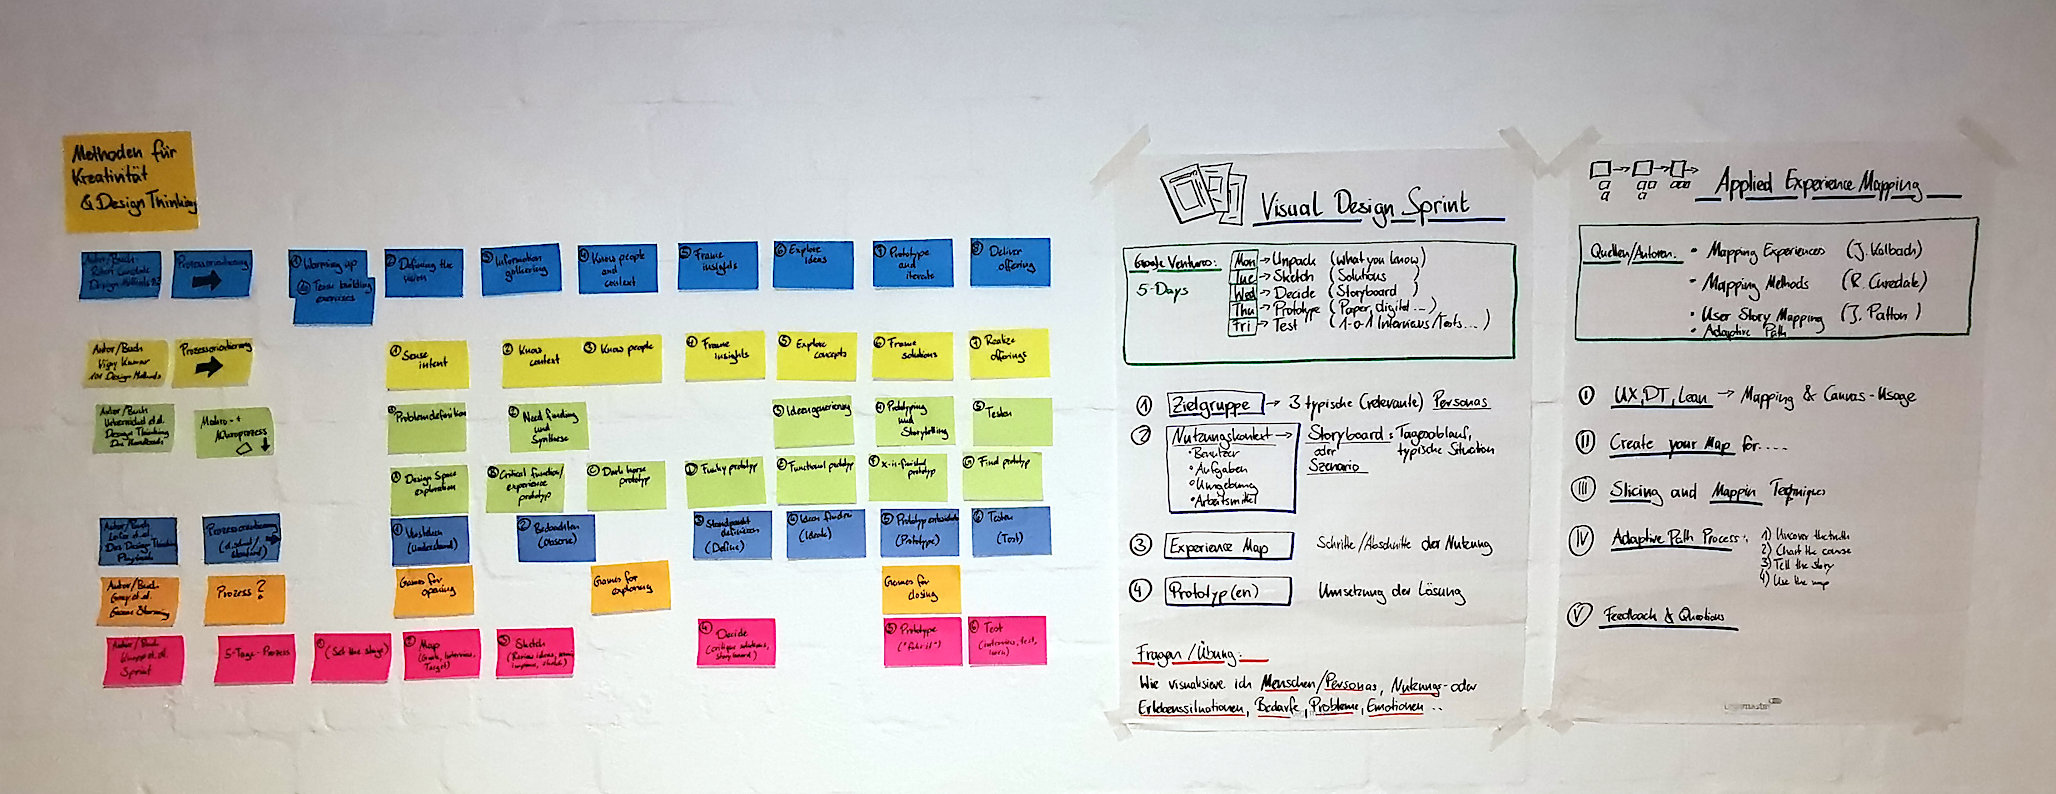 Methoden für
Kreativität
& Design Thinking
Autor/Buch
Robert Curedale
Design Methods
Prozessorientierung
① Warming up
Team building
exercises
② Defining the
vision
③ Information
gathering
④ Know people
and
context
⑤ Frame
insights
⑥ Explore
ideas
⑦ Prototype
and
iterate
⑧ Deliver
offering
Autor/Buch
Vijay Kumar
101 Design Methods
Prozessorientierung
① Sense
intent
② Know
context
③ Know people
④ Frame
insights
⑤ Explore
concepts
⑥ Frame
solutions
⑦ Realize
offerings
Autor/Buch
Uebernickel et.al.
Design Thinking
Das Handbuch
Makro- +
Mikroprozess
① Problemdefinition
② Need finding
und
Synthese
③ Ideengenerierung
④ Prototyping
und
Storytelling
⑤ Testen
Ⓐ Design Space
exploration
Ⓑ Critical function/
experience
prototyp
Ⓒ Dark horse
prototyp
Ⓓ Funky prototyp
Ⓔ Functional prototyp
Ⓕ X-is-finished
prototyp
Ⓖ Final prototyp
Autor/Buch
et.al.
Das Design Thinking
Playbook
Prozessorientierung
① Verstehen
(Understand)
② Beobachten
(Observe)
③ Standpunkt
definieren
(Define)
④ Ideen finden
(Ideate)
⑤ Prototyp entwickeln
(Prototype)
⑥ Testen
(Test)
Autor/Buch
Gray et.al.
Game Storming
Prozess?
Games for
opening
Games for
exploring
Games for
closing
Autor/Buch
Knapp et.al.
Sprint
5-Tage-Prozess
(Set the stage)
② Map
(Goals, Interview,
Target)
③ Sketch
④ Decide
(critique solutions,
Storyboard)
⑤ Prototype
("Fake it")
⑥ Test
(interview, test,
learn)
Visual Design Sprint
Google Ventures:
5-Days
Mon → Unpack (what you know)
Tue → Sketch (Solutions)
Wed → Decide (Storyboard)
Thu → Prototype (Paper, digital...)
Fri → Test (1-o-1 Interviews/Tests...)
① Zielgruppe → 3 typische (relevante) Personas
② Nutzungskontext → Storyboard: Tagesablauf,
oder typische Situation
Szenario
• Benutzer
• Aufgaben
• Umgebung
• Arbeitsmittel
③ Experience Map Schritte/Abschnitte der Nutzung
④ Prototyp(en) Umsetzung der Lösung
Fragen/Übung:
Wie visualisiere ich Menschen/Personas, Nutzungs- oder
Erlebenssituationen, Bedarfe, Probleme, Emotionen ..
Applied Experience Mapping
Quellen/Autoren:
• Mapping Experiences (J. Kalbach)
• Mapping Methods (R. Curedale)
• User Story Mapping (J. Patton)
• Adaptive Path
I UX, DT, Lean → Mapping & Canvas-Usage
II Create your Map for....
III Slicing and Mappin Teqniques
IV Adaptive Path Process: 1) Uncover the truth
2) Chart the course
3) Tell the story
4) Use the map
V Feedback & Questions